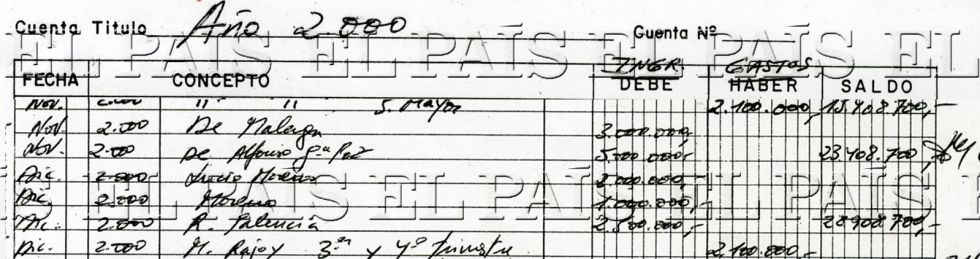 Cuenta Titulo Año 2.000 Cuenta Nº
EL PAÍS EL PAÍS EL
INGR. GASTOS
FECHA CONCEPTO DEBE HABER SALDO
Nov. 2.000 " " S. Mayor 2.100.000, 15.408.700,-
Nov 2.000 De Malaga 3.000.000,
Nov. 2.000 De Alfonso Gª Poz 5.000.000,- 23.408.700,
Dic. 2.000 Lucio Moreno 2.000.000,
Dic. 2.000 Moreno 1.000.000,-
PAÍS EL PAÍS EL PAÍS EL PAÍS
Dic. 2.000 R. Palencia 2.500.000,- 28.908.700,-
Dic. 2.000 M. Rajoy 3er y 4º Trimestre 2.100.000.-